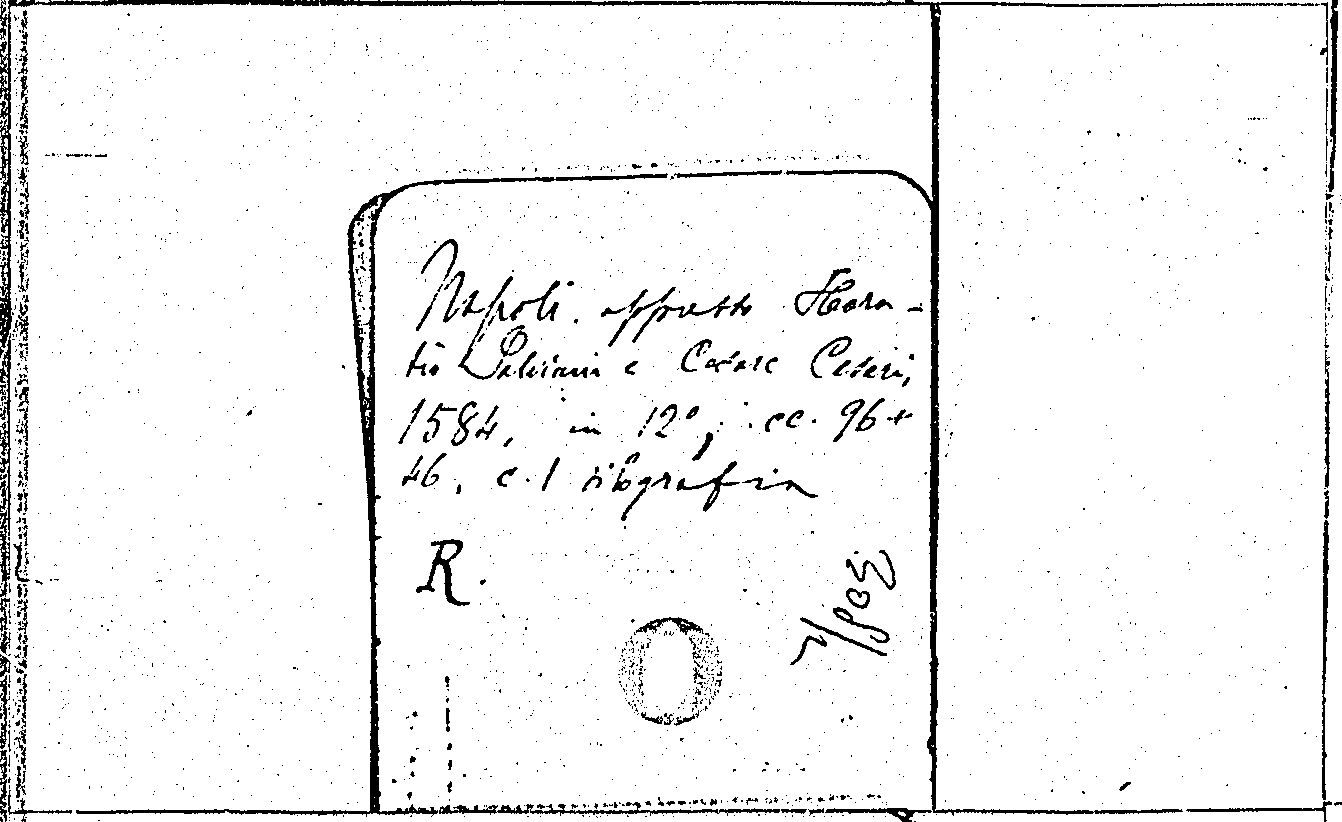 Napoli. appresso Hora-
tio Salviani e Cesare Cesari,
1584, in 12°, cc. 96+
46, c. 1 silografia
R.